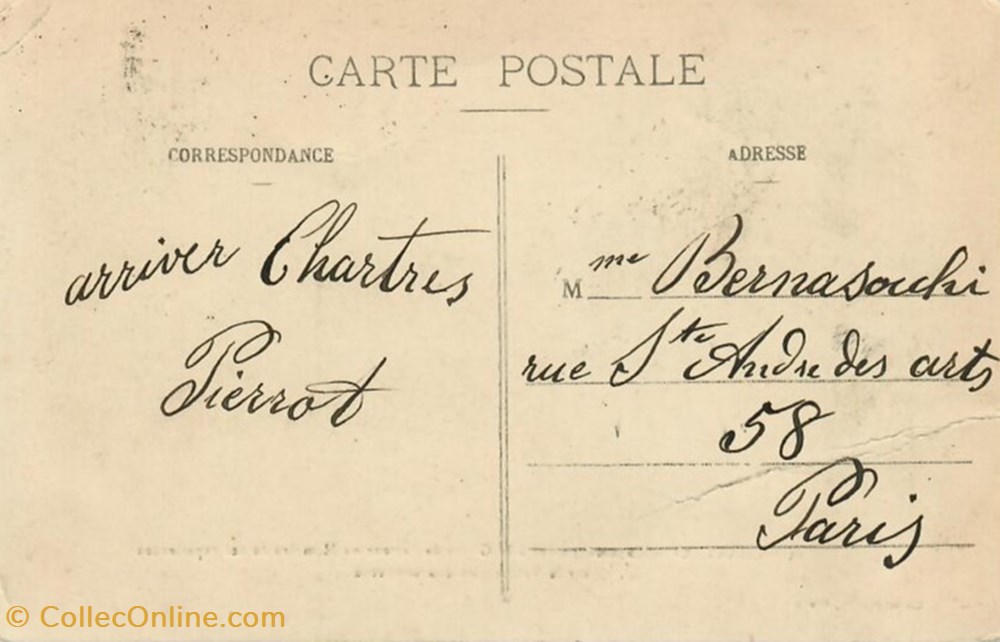 CARTE POSTALE
CORRESPONDANCE
arriver Chartres
Pierrot
ADRESSE
Mme Bernasouhi
rue Ste Andre des arts
58
Paris
© CollecOnline.com